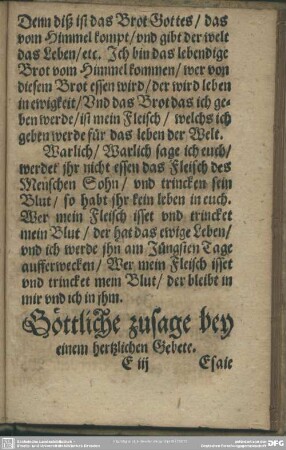 Denn diß ist das Brot Gottes / das
vom Himmel kompt / vnd gibt der welt
das Leben / etc. Ich bin das lebendige
Brot vom Himmel kommen / wer von
diesem Brot essen wird / der wird leben
in ewigkeit / Vnd das Brot das ich ge-
ben werde / ist mein Fleisch / welchs ich
geben werde für das leben der Welt.
Warlich / Warlich sage ich euch /
werdet jhr nicht essen das Fleisch des
Menschen Sohn / vnd trincken sein
Blut / so habt jhr kein leben in euch.
Wer mein Fleisch isset vnd trincket
mein Blut / der hat das ewige Leben /
vnd ich werde jhn am Jüngsten Tage
aufferwecken / Wer mein Fleisch isset
vnd trincket mein Blut / der bleibt in
mir vnd ich in jhm.
Göttliche zusage bey
einem hertzlichen Gebete.
E iij Esaie
DFG